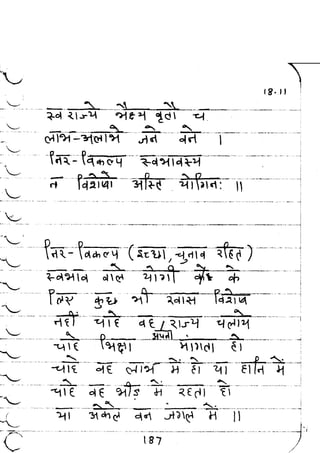 18.11
स्व राज्ये भैक्ष्य वृतौ च
लाभ-अलाभे जने वने ।
निर-विकल्प स्वभावस्य
न विशेषो अस्ति योगिनः ॥
निर-विकल्प (इच्छा, चुनाव रहित)
स्वभाव वाले योगी के
लिए कुछ भी खास विशेष
नहीं चाहे वह / राज्य चलाये
अपनी
चाहे भिक्षा मांगता हो
चाहे वह लाभ में हो या हानि में
चाहे वह भीड़ में रहता हो
या अकेले वन जंगल में ॥
187